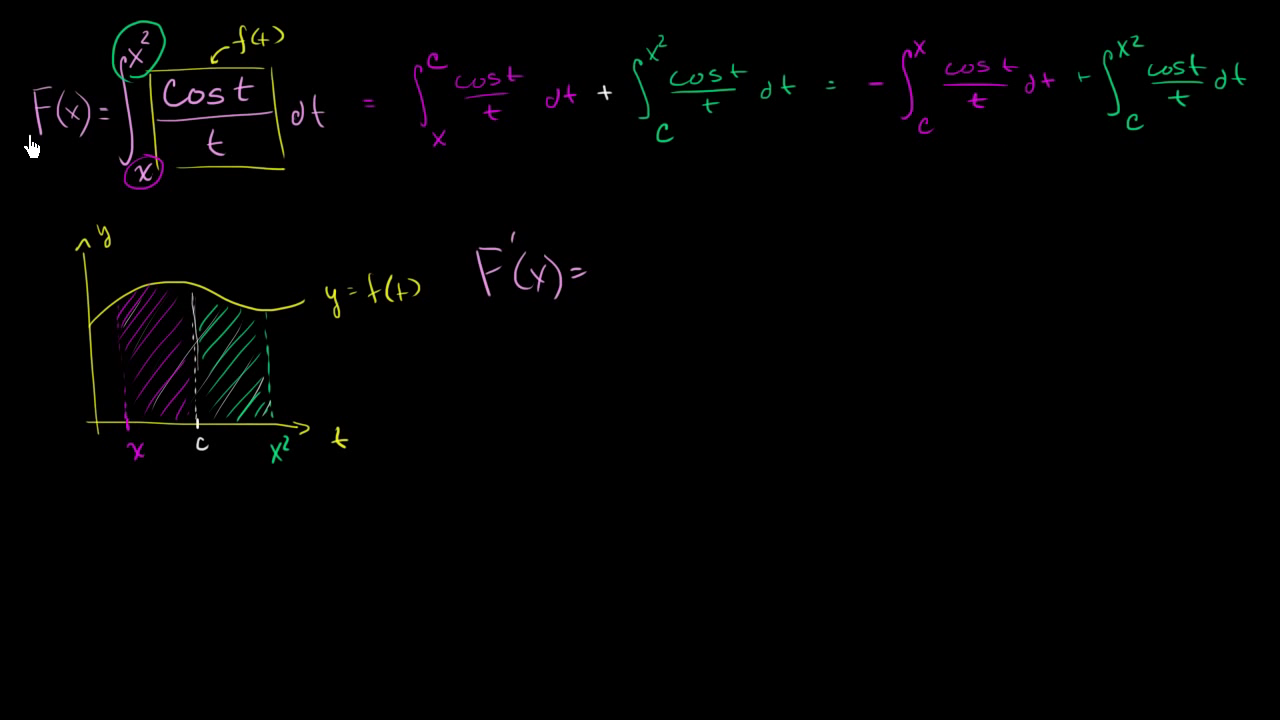 F(x) = ∫_x^{x²} cos t / t dt = ∫_x^c cos t / t dt + ∫_c^{x²} cos t / t dt = - ∫_c^x cos t / t dt + ∫_c^{x²} cos t / t dt
f(t)
y
y = f(t)
F'(x) =
x c x² t